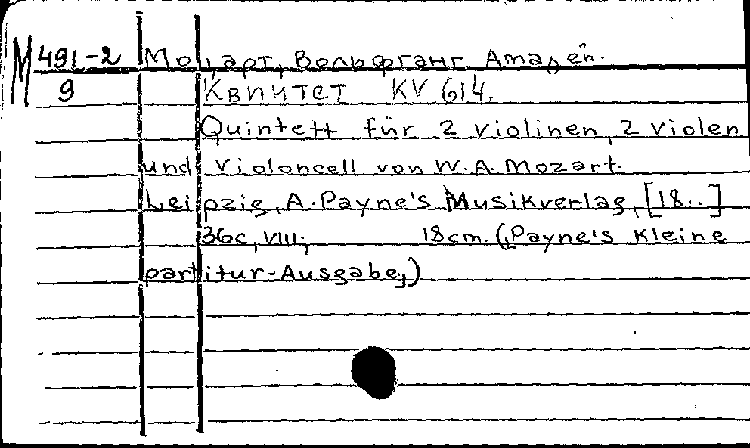 М 491-2 Моцарт, Вольфганг Амадей.
9 Квинтет KV 614.
Quintett für 2 violinen, 2 violen
und violoncell von W.A. Mozart.
Leipzig, A. Payne's Musikverlag, [18..]
36с, VIII; 18cm. (Payne's Kleine
partitur-Ausgabe,)